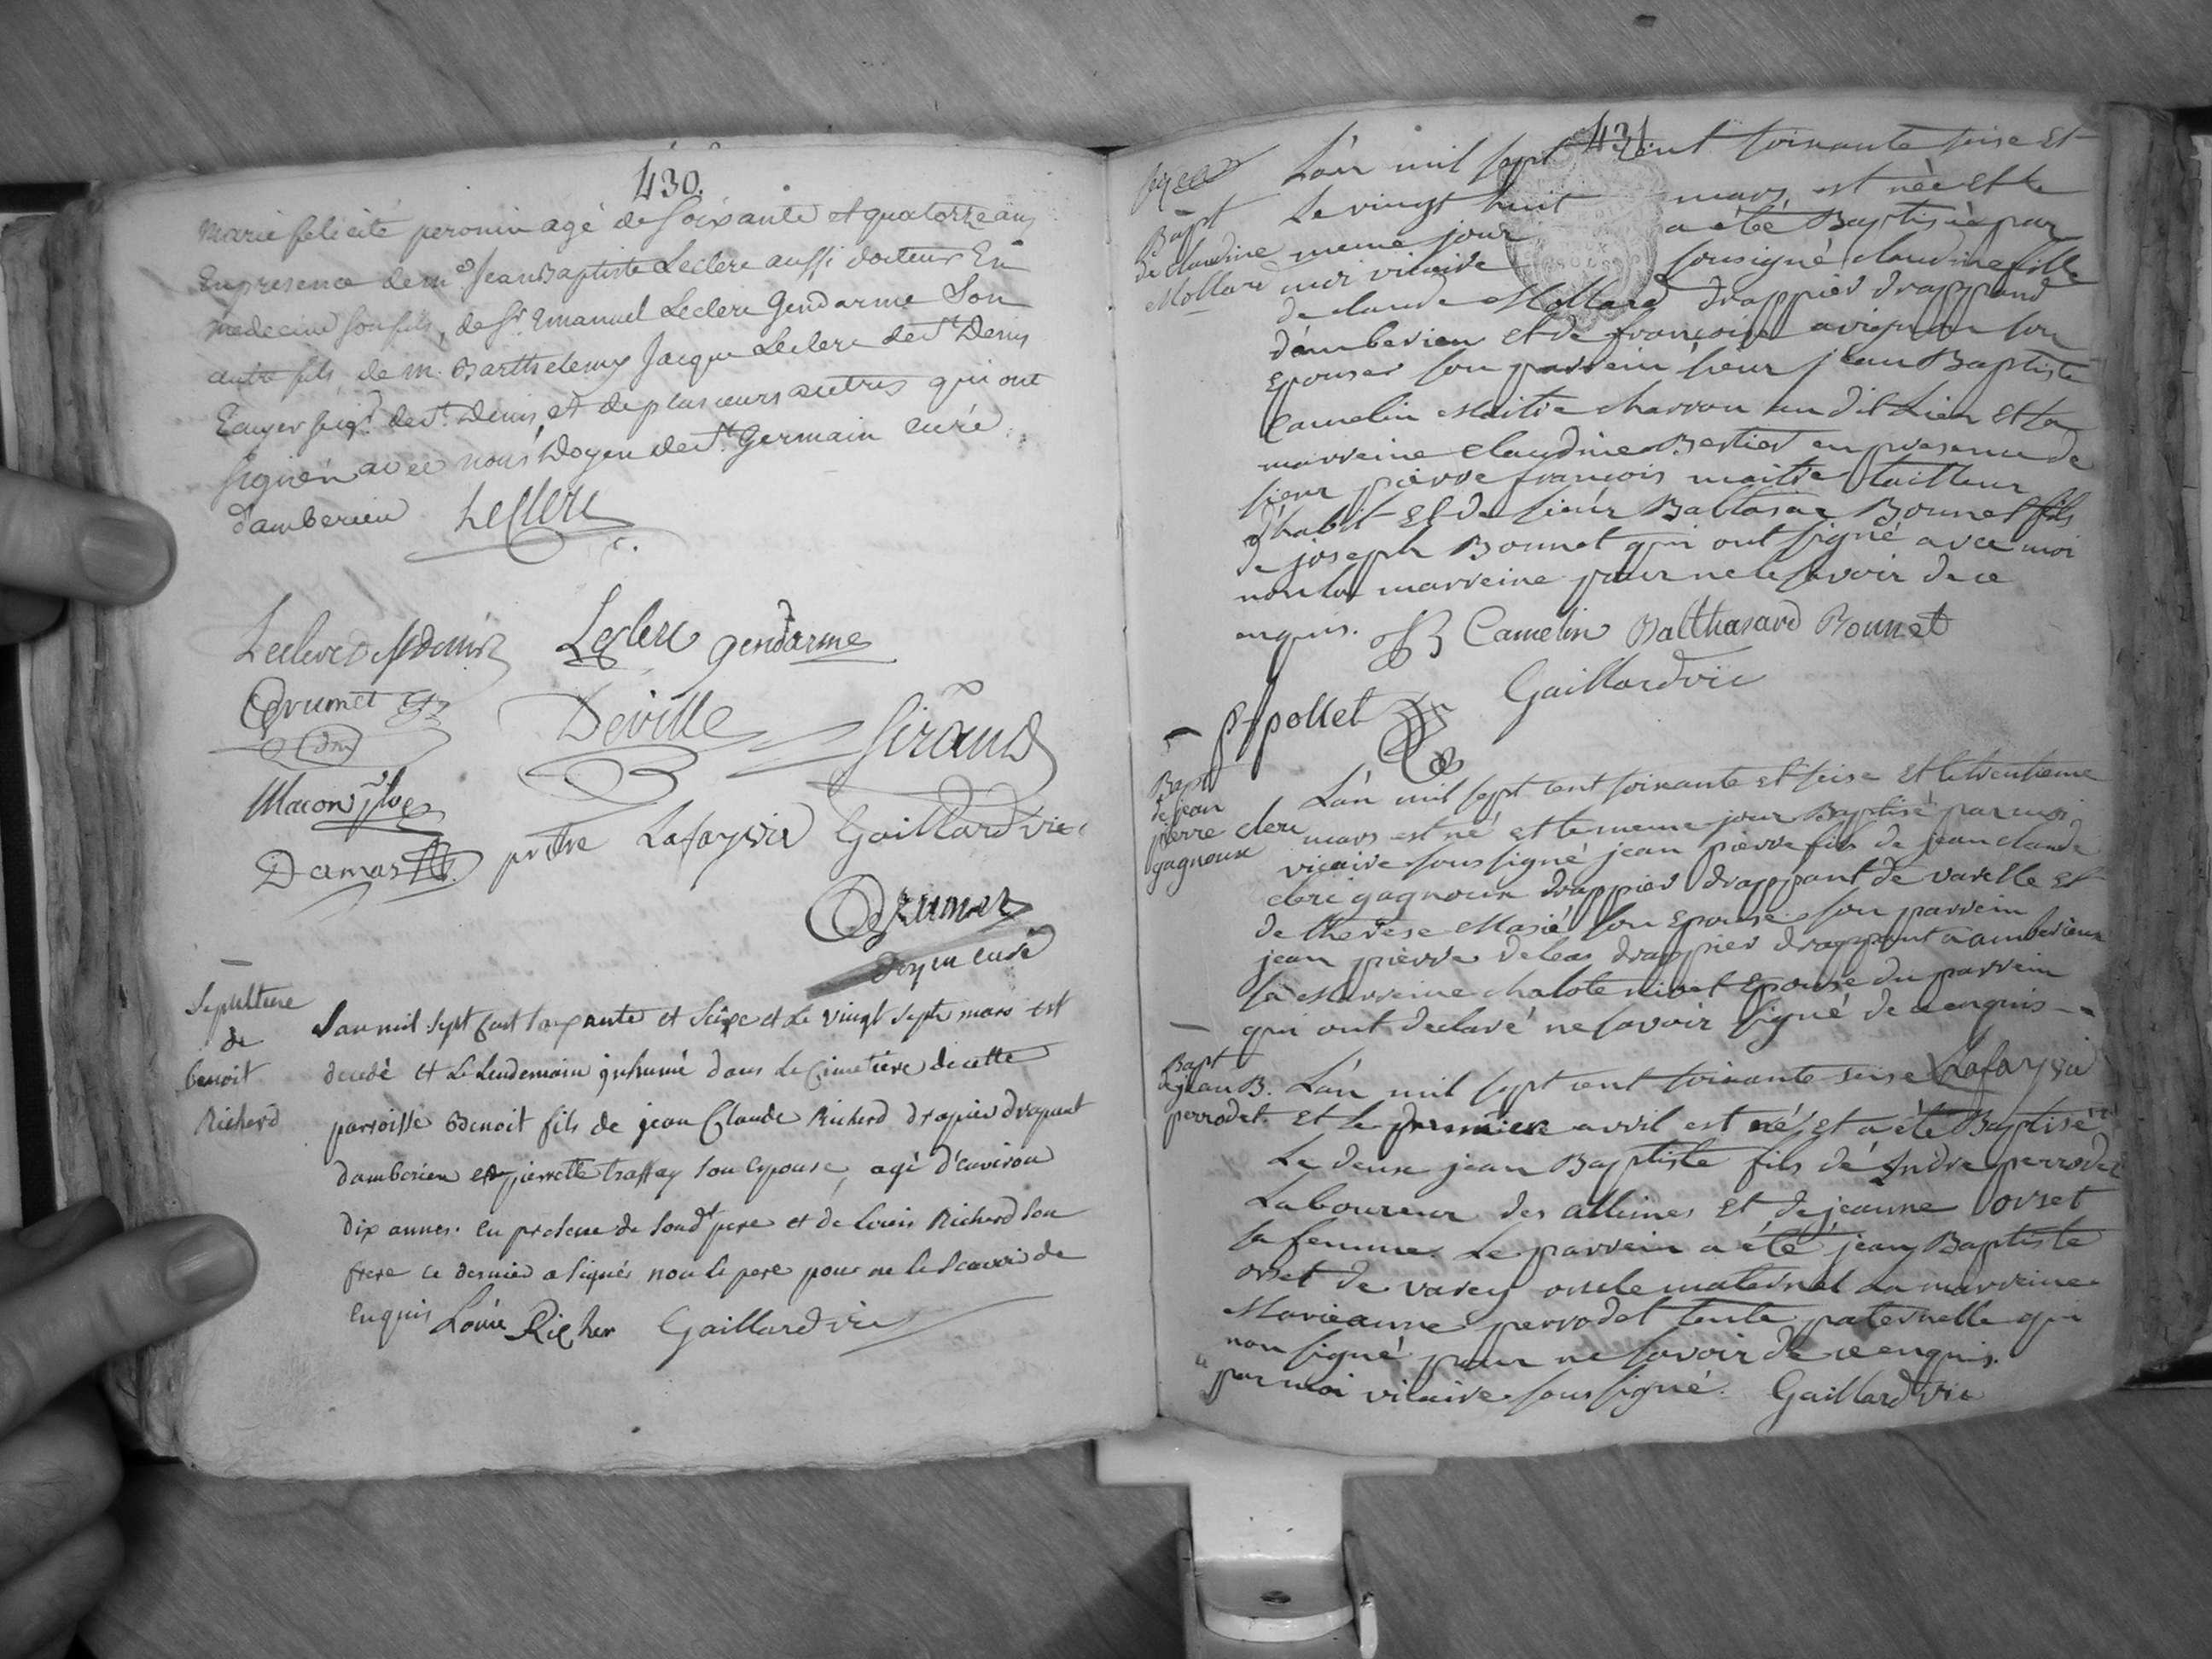 430.
marie felicité peronin agé de soixante et quatorze ans
En presence de mre Jean Baptiste Leclerc aussi docteur En
medecine son fils, de Sr. Emanuel Leclerc Gendarme Son
autre fils de m. Barthelemy Jacque Leclerc de St Denis
Ecuyer seigr. de St. Denis, et de plusieurs autres qui ont
signé avec nous Doyen de St. Germain curé
d'amberieu Leclerc
Leclerc De st denis Leclerc gendarme
Grumet
Deville Sirand
Macon
Damas prêtre Lafay vic Gaillard vic
Grumet
doyen curé
Sepulture
de
benoit
Richerd
Lan mil sept Cent soixante et seize et le vingt sept mars est
decedé et le lendemain inhumé dans le Cimetiere de cette
parroisse Benoit fils de jean Claude Richerd drapier drapant
damberieu et pierrette traffay son epouse, agé d'environ
dix annes. en presence de soud't pere et de Louis Richerd son
frere ce dernier a signés non le pere pour ne le scavoir de
enquis Louie Richer Gaillard vic
431
Bapt
de claudine
Mollard
L'an mil sept cent soixante seise Et
Le vingt huit mars est née et le
meme jour a été Baptisée par
moi vicaire sousigné claudine fille
de claude Mollard drappier drappand
d'amberieu et de françoise avignon son
Epouse son parrein sieur jean Baptiste
Camelin Maitre charron au dit Lieu et la
marreine claudine Bertier en presence de
sieur pierre françois maitre tailleur
d'habit et de sieur Baltasar Bonnet fils
de joseph Bonnet qui ont signé avec moi
non la marreine pour ne le savoir de ce
enquis. Camelin Balthasard Bonnet
Gaillard vic
pollet
Bapt
de jean
pierre clerc
gagneux
L'an mil sept cent soixante et seise et le trentieme
mars est né et le meme jour Baptisé par moi
vicaire sous signé jean pierre fils de jean claude
clerc gagneux drappier drappant de varelle et
de therese Masié son Epouse son parrein
jean pierre deleas drappier drappant a amberieux
La Marreine chalote nivet Epouse du parrein
qui ont declaré ne savoir signé de ce enquis
Lafay vic
Bapt
de jean B.
perrodet.
L'an mil sept cent soixante seise
et le premiere avril est né et a été Baptisé
Le deux jean Baptiste fils de Andre perrodet
Laboureur des allimes et de jeanne orset
sa femme. Le parrein a été jean Baptiste
orset de varey oncle maternel La marreine
Marieanne perrodet tente paternelle qui
non signé pour ne savoir de ce enquis.
par moi vicaire sous signé. Gaillard vic